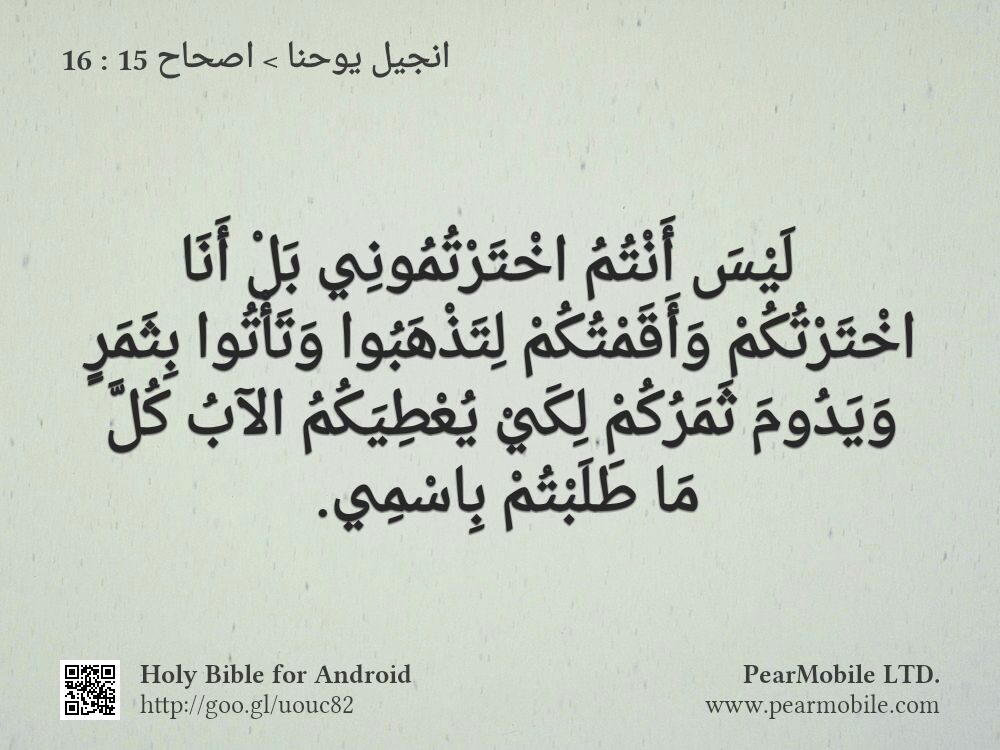 انجيل يوحنا > اصحاح 15 : 16
لَيْسَ أَنْتُمُ اخْتَرْتُمُونِي بَلْ أَنَا
اخْتَرْتُكُمْ وَأَقَمْتُكُمْ لِتَذْهَبُوا وَتَأْتُوا بِثَمَرٍ
وَيَدُومَ ثَمَرُكُمْ لِكَيْ يُعْطِيَكُمُ الآبُ كُلَّ
مَا طَلَبْتُمْ بِاسْمِي.
Holy Bible for Android
http://goo.gl/uouc82
PearMobile LTD.
www.pearmobile.com